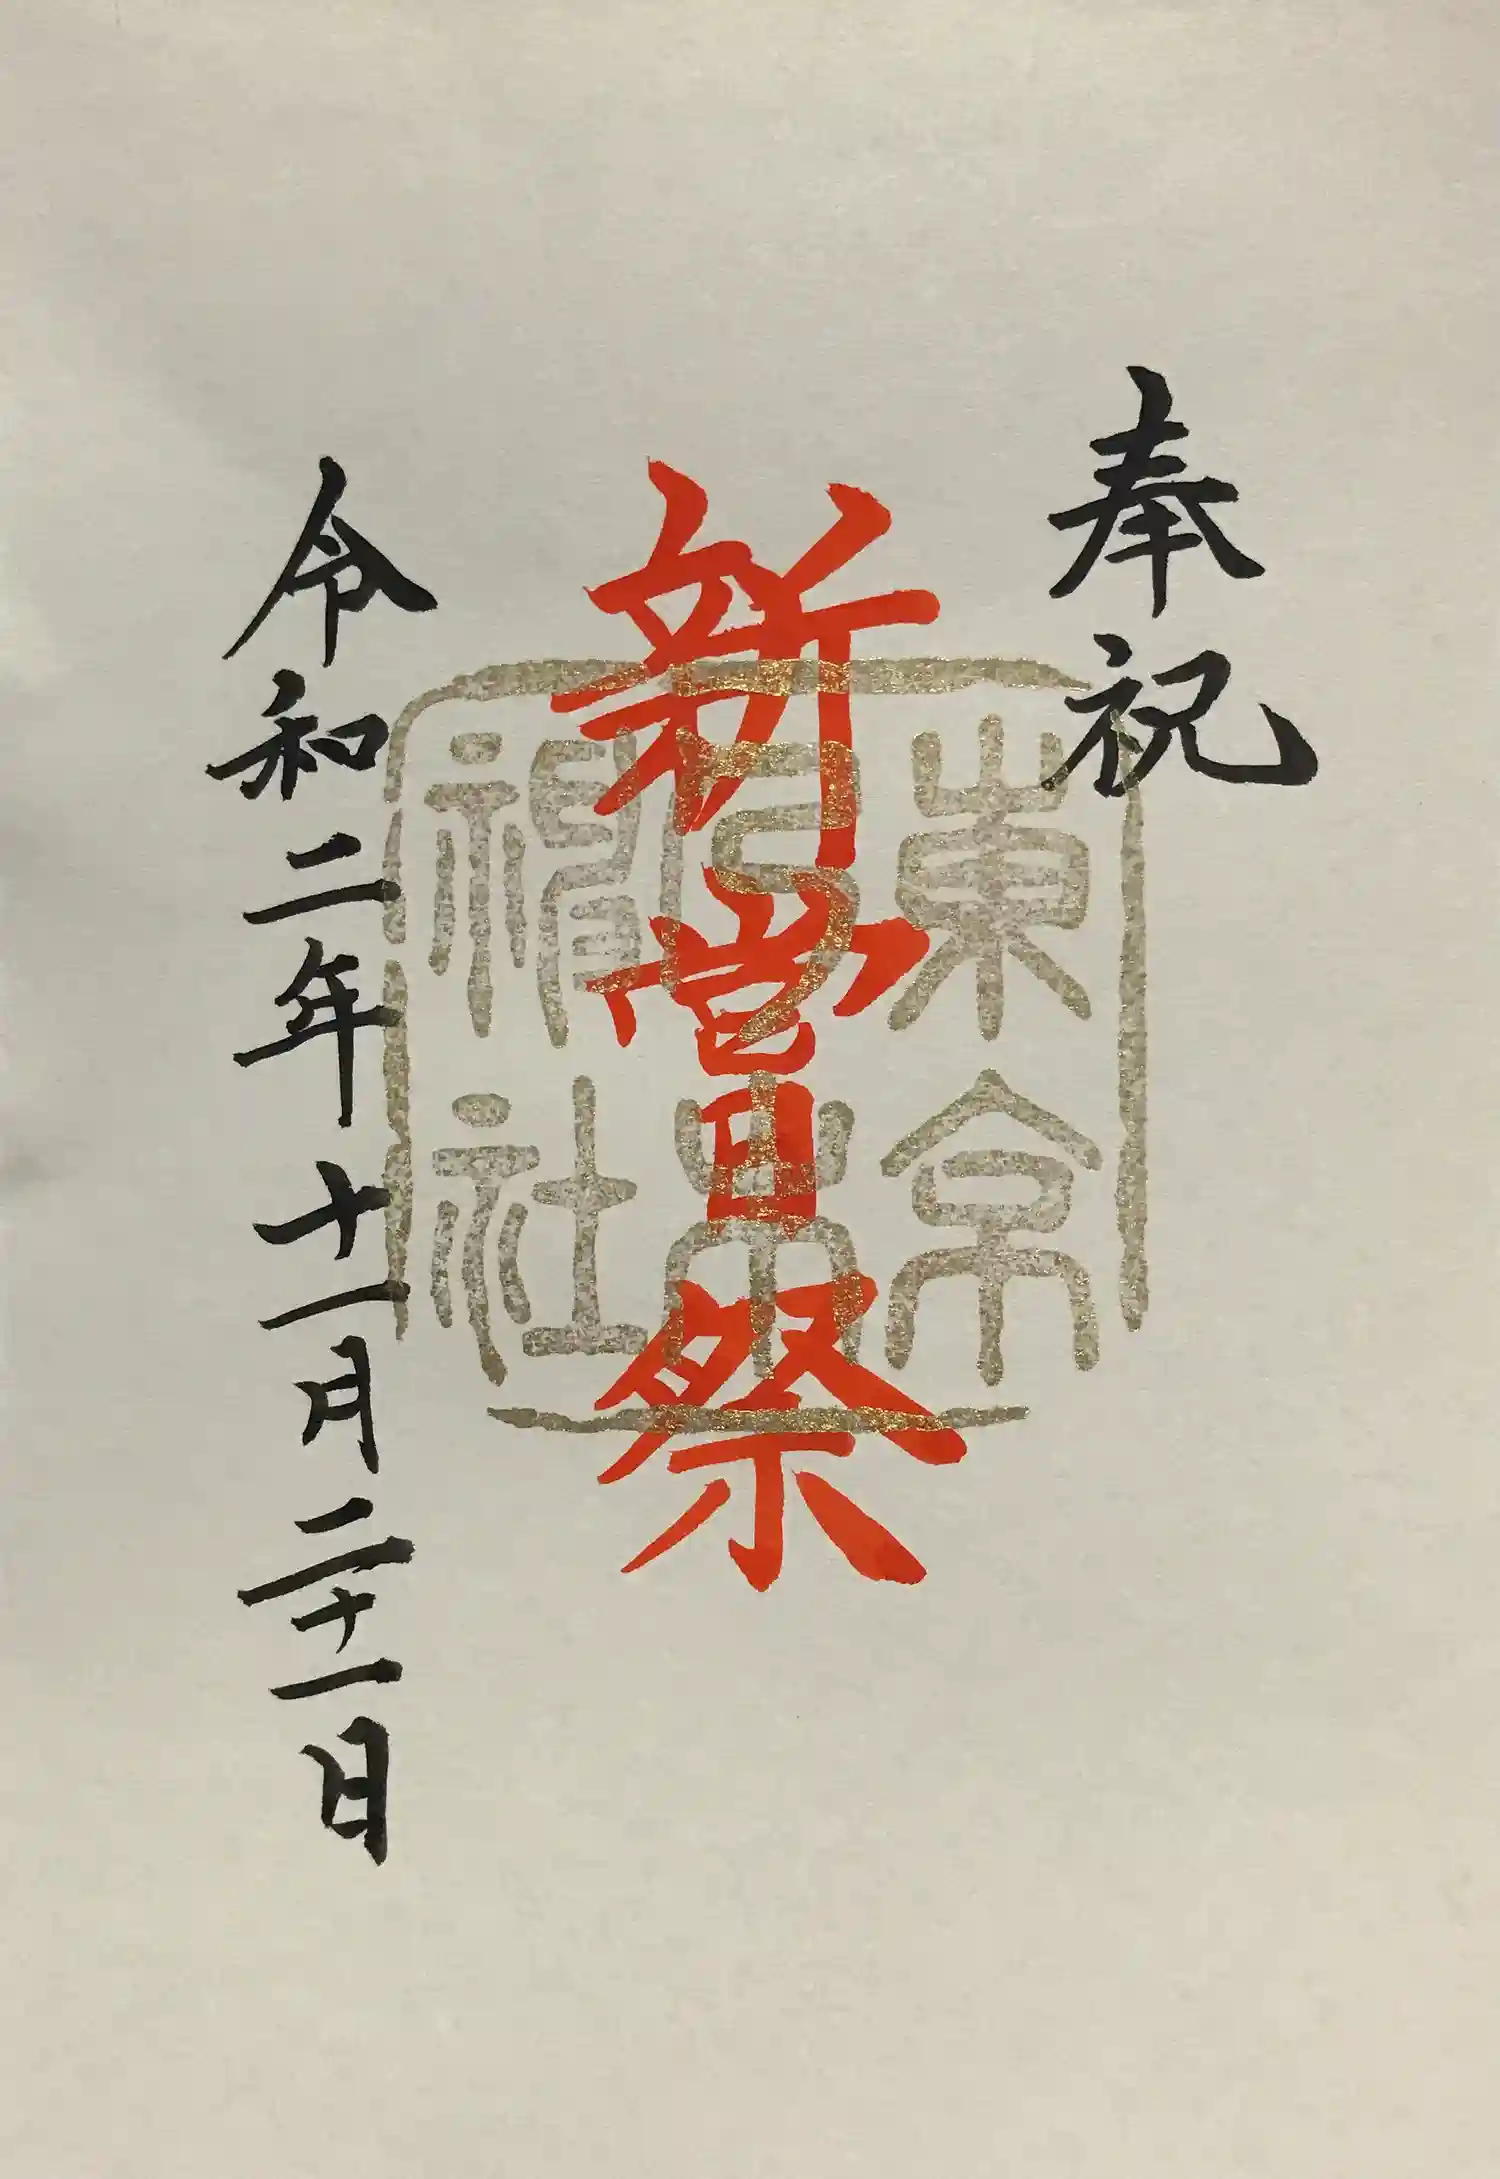 奉祝
新嘗祭
令和二年十一月二十一日
東京
乃木
神社